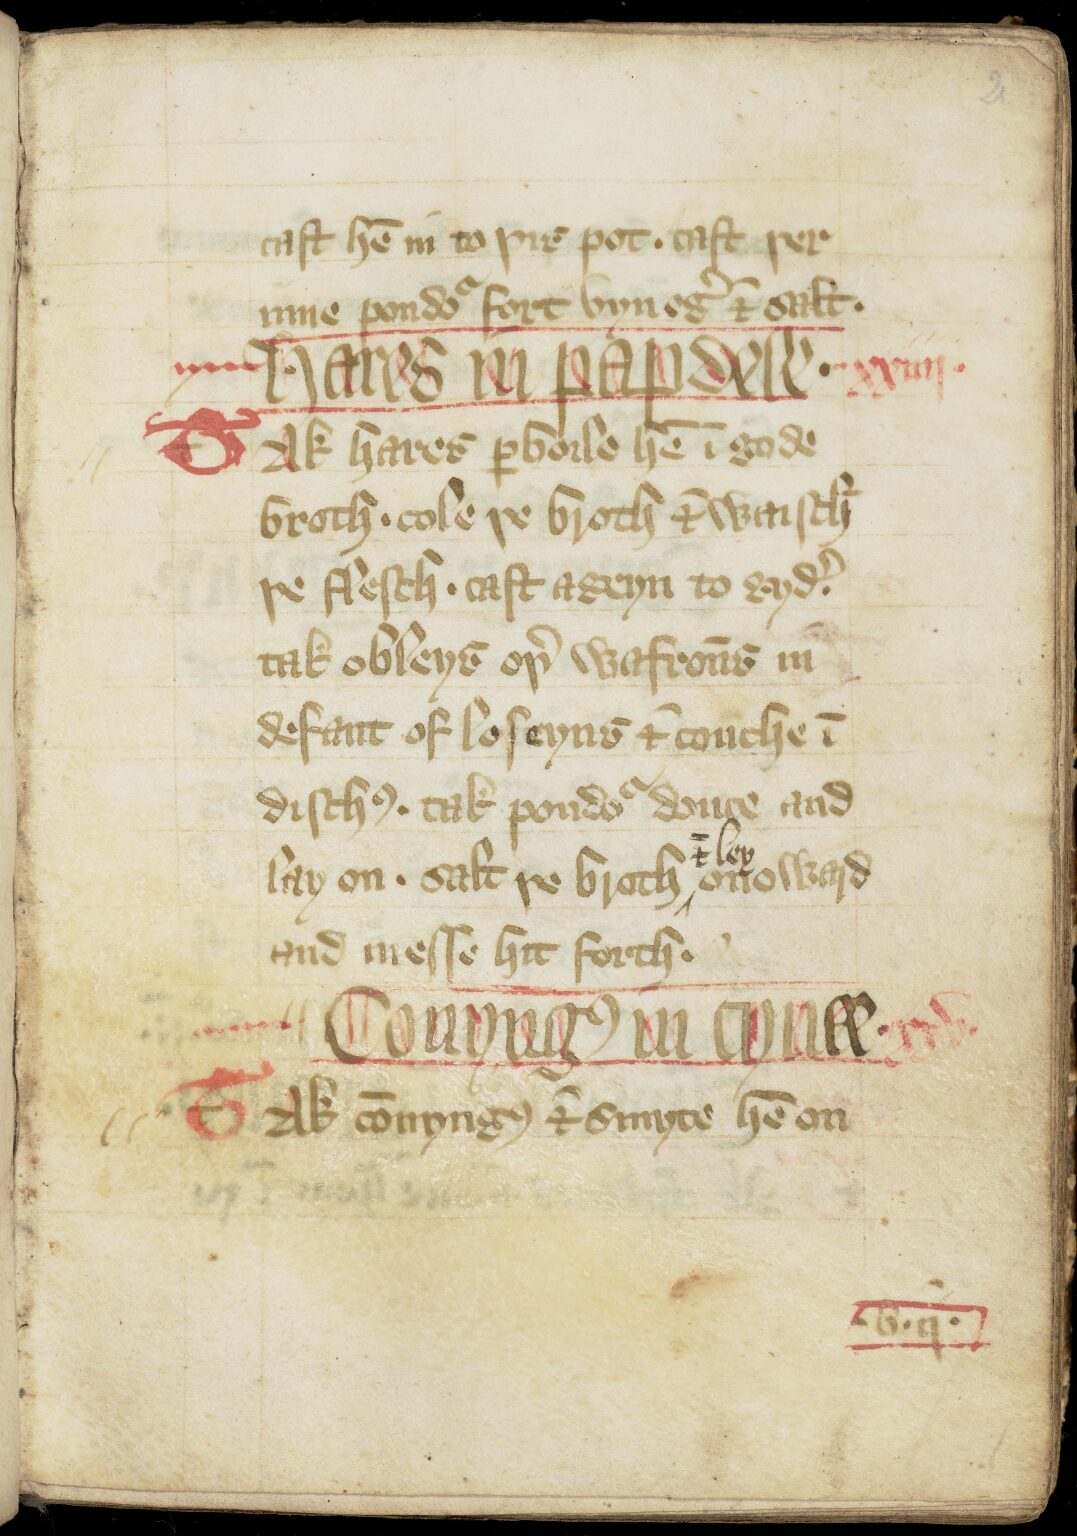 2
cast hē in to þis pot. cast þer
inne poudoᵃ fort vyneg͛ ⁊ salt.
hares in papdele. xxiiii.
Tak hares ꝑboile hē ī gode
broth. cole þe broth ⁊ waisch
þe flesch. cast ageyn to gyd͛.
tak obleys oþ͛ wafrōns in
defaut of loseyns ⁊ couche ī
dischꝰ. tak poudoᵃ douce and
lay on. salt þe broth ⁊ ley onoward
and messe hit forth.
Conyngꝰ in cynee. xxv.
Tak cōnyngꝰ ⁊ smyte hē on
b.ij.